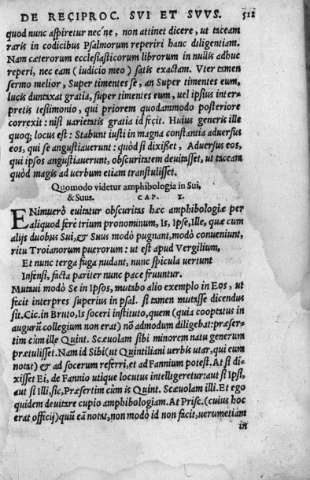 DE RECIPROC. SVI ET SVVS. 512
quod nunc aspiretur nec ne, non attinet dicere, ut taceam
raris in codicibus Psalmorum reperiri hanc diligentiam.
Nam cæterorum ecclesiasticorum librorum in nullis adhuc
reperi, nec eam (iudicio meo) satis exactam. Vter tamen
sermo melior, Super timentes se, an Super timentes eum,
lucis duntaxat gratia, super timentes eum, uel ipsius inter-
pretis testimonio, qui priorem quodammodo posteriore
correxit: nisi uarietatis gratia id fecit. Huius generis ille
quoq; locus est: Stabunt iusti in magna constantia aduersus
eos, qui se angustiauerunt: quòd si dixisset, Aduersus eos,
qui ipsos angustiauerunt, obscuritatem deuitasset, ut taceam
quòd magis ad uerbum etiam transtulisset.
Quomodo videtur amphibologia in Sui,
& Suus. CAP. I.
ENimuerò euitatur obscuritas hæc amphibologiæ per
aliquod ferè trium pronominum, Is, Ipse, Ille, quæ cum
alijs duobus Sui, & Suus modò pugnant, modò conueniunt,
ritu Troianorum puerorum: ut est apud Vergilium,
Et nunc terga fuga nudant, nunc spicula uertunt
Infensi, facta pariter nunc pace fruuntur.
Mutaui modò Se in Ipsos, mutabo alio exemplo in Eos, ut
fecit interpres superius in psal. si tamen mutasse dicendus
sit. Cic. in Bruto, Is soceri instituto, quem (quia cooptatus in
augurũ collegium non erat) nõ admodum diligebat: præser-
tim cùm ille Quint. Scæuolam sibi minorem natu generum
prætulisset. Nam id Sibi (ut Quintiliani uerbis utar, qui eum
notat) & ad socerum referri, et ad Fannium potest. At si di-
xisset Ei, de Fannio utique locutus intelligeretur: aut si Ipsi,
aut si Illi, sic, Præsertim cùm is Quint. Scæuolam illi. Et ego
quidem deuitare cupio amphibologiam. At Prisc. (cuius hoc
erat officij) quũ eã notat, non modò id non facit, uerumetiam
in